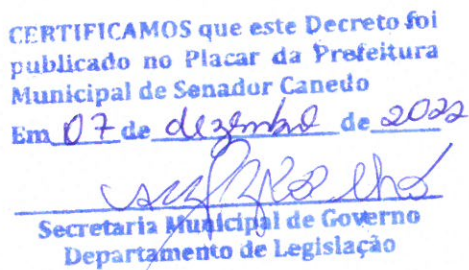 CERTIFICAMOS que este Decreto foi
publicado no Placar da Prefeitura
Municipal de Senador Canedo
Em 07 de dezembro de 2022
Secretaria Municipal de Governo
Departamento de Legislação